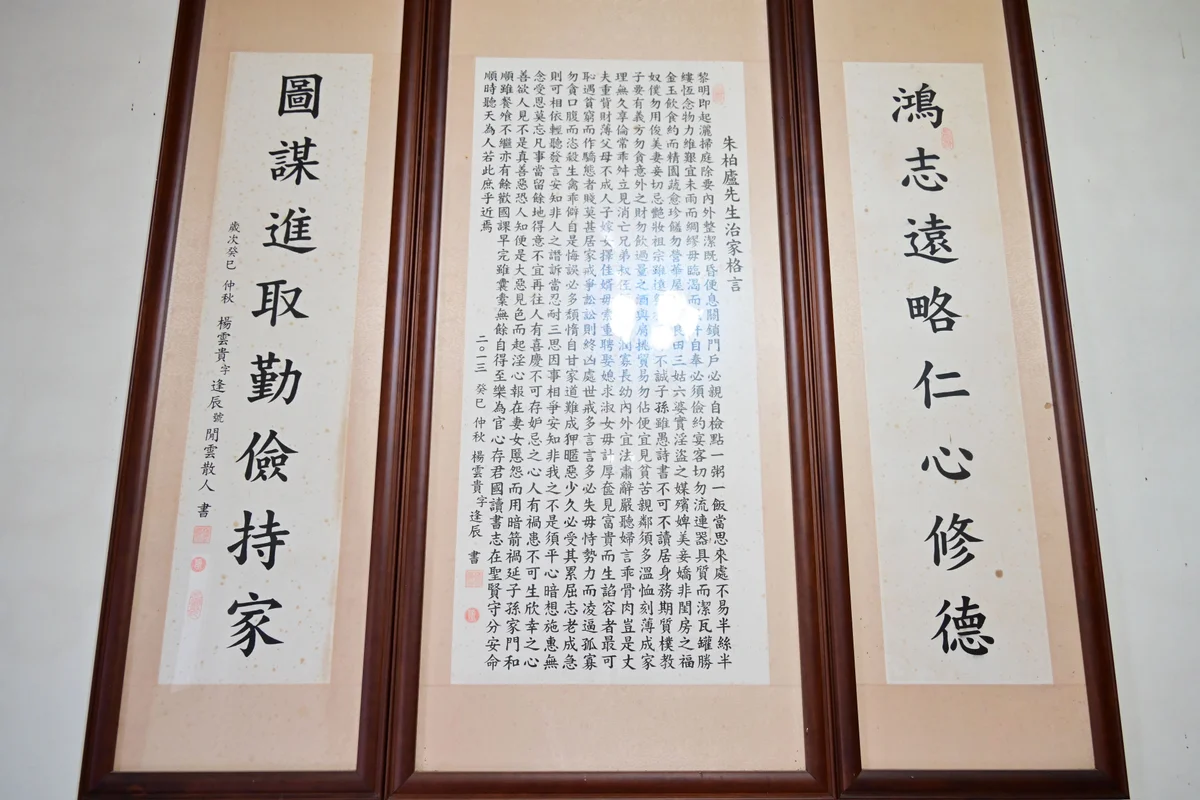 鴻志遠略仁心修德
朱柏廬先生治家格言
黎明即起灑掃庭除要內外整潔既昏便息關鎖門戶必親自檢點一粥一飯當思來處不易半絲半
縷恆念物力維艱宜未雨而綢繆毋臨渴而井自奉必須儉約宴客切勿流連器具質而潔瓦罐勝
金玉飲食約而精園蔬愈珍饈勿營華屋良田三姑六婆實淫盜之媒殯婢美妾嬌非閨房之福
奴僕勿用俊美妻妾切忌艷妝祖宗雖遠不誠子孫雖愚詩書不可不讀居身務期質樸教
子要有義方勿貪意外之財勿飲過量之酒與肩挑貿易勿佔便宜見貧苦親鄰須多溫恤刻薄成家
理無久享倫常乖舛立見消亡兄弟叔侄潤寡長幼內外宜法肅辭嚴聽婦言乖骨肉豈是丈
夫重貲財薄父母不成人子嫁女擇佳婿毋索重聘娶媳求淑女毋計厚奩見富貴而生諂容者最可
恥遇貧窮而作驕態者賤莫甚居家戒爭訟訟則終凶處世戒多言言多必失毋恃勢力而凌逼孤寡
勿貪口腹而恣殺生禽乖僻自是悔誤必多頹惰自甘家道難成狎暱惡少久必受其累屈志老成急
則可相依輕聽發言安知非人之譖訴當忍耐三思因事相爭安知非我之不是須平心暗想施惠無
念受恩莫忘凡事當留餘地得意不宜再往人有喜慶不可存妒忌之心人有禍患不可生欣幸之心
善欲人見不是真善惡恐人知便是大惡見色而起淫心報在妻女匿怨而用暗箭禍延子孫家門和
順雖饔飧不繼亦有餘歡國課早完雖囊橐無餘自得至樂為官心存君國讀書志在聖賢守分安命
順時聽天為人若此庶乎近焉
二〇一三 癸巳 仲秋 楊雲貴字逢辰 書
圖謀進取勤儉持家
歲次癸巳 仲秋 楊雲貴字逢辰號閒雲散人 書